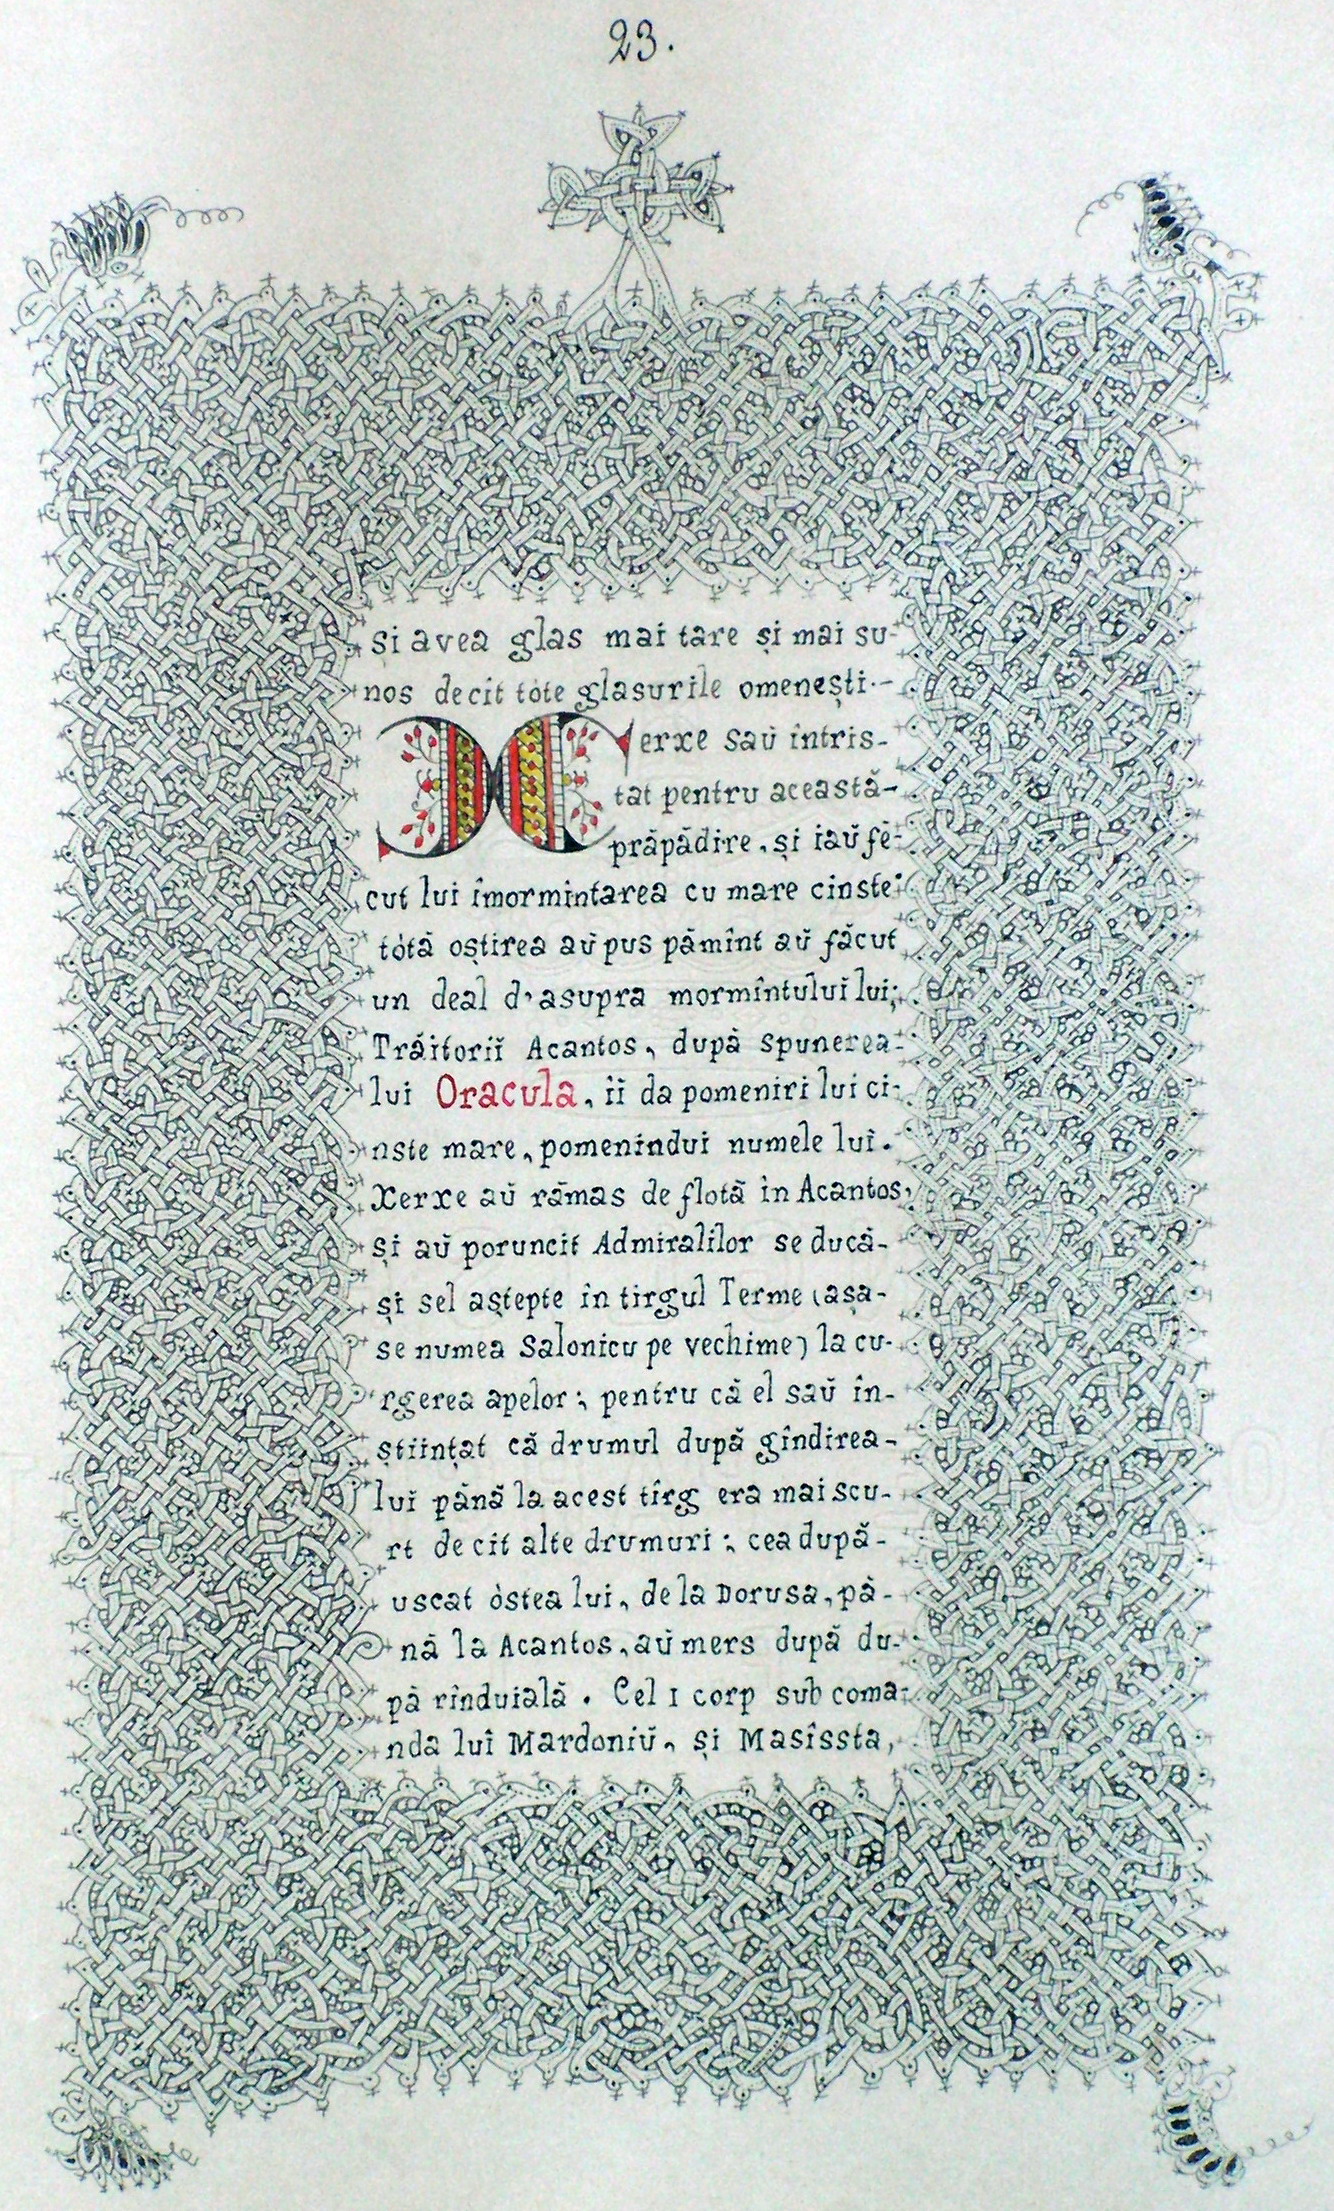 23.
și avea glas mai tare și mai su-
nos decit tòte glasurile omenești.-
Xerxe saŭ întris-
tat pentru această-
prăpădire, și iaŭ fĕ-
cut lui îmormintarea cu mare cinste:
tòtă oștirea aŭ pus pămînt aŭ făcut
un deal d'asupra mormîntuluĭ lui;
Trăitorĭĭ Acantos, după spunerea-
lui Oracula, îi da pomeniri lui ci-
nste mare, pomenindui numele luĭ.
Xerxe aŭ rămas de flotă în Acantos,
și aŭ poruncit Admiralilor se ducă-
și sel aștepte în tirgul Terme (așa-
se numea Salonicu pe vechime) la cu-
rgerea apelor; pentru că el saŭ în-
stiințat că drumul după gîndirea-
lui pănă la acest tîrg era mai scu-
rt decit alte drumuri; cea după-
uscat òstea lui, de la Dorusa, pă-
nă la Acantos, aŭ mers după du-
pă rînduială. Cel I corp sub coma-
nda luĭ Mardoniŭ, și Masîssta,